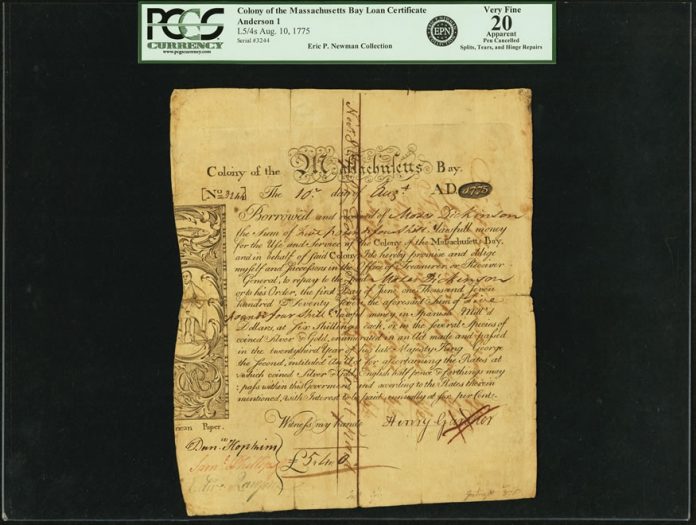 PCGS
CURRENCY
www.pcgscurrency.com
Colony of the Massachusetts Bay Loan Certificate
Anderson 1
L5/4s Aug. 10, 1775
Serial #3244
Eric P. Newman Collection
EPN
Very Fine
20
Apparent
Pen Cancelled
Splits, Tears, and Hinge Repairs
Colony of the Massachusetts Bay.
[No 3244] The 10th day of Augst AD 1775
Borrowed and received of Moses Dickinson
the Sum of five pounds four Shill. Lawfull money
for the Use and Service of the Colony of the Massachusetts Bay,
and in behalf of said Colony I do hereby promise and oblige
myself and Successors in the Office of Treasurer or Receiver
General, to repay to the said Moses Dickinson
or to his Order, the first Day of June, one Thousand Seven
hundred & Seventy Seven the aforesaid Sum of five
pounds four Shill Lawful money, in Spanish Mill'd
Dollars, at Six Shillings each, or in the several Species of
coined Silver & Gold, enumerated in an Act made and passed
in the twenty third Year of his late Majesty King George
the Second, entitled An Act for ascertaining the Rates at
which coined Silver & Gold, English half pence & farthings may
pass within this Government and according to the Rates therein
mentioned, with Interest to be paid annually at six per Cent.
Witness my hand
Henry Gardner
rican Paper.
Danl Hopkins
Saml Phillips
£5.4.0